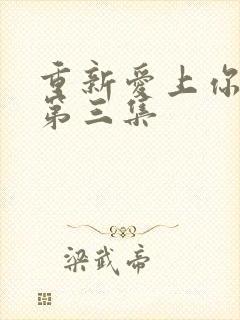 重新愛上你
第三集
梁武帝